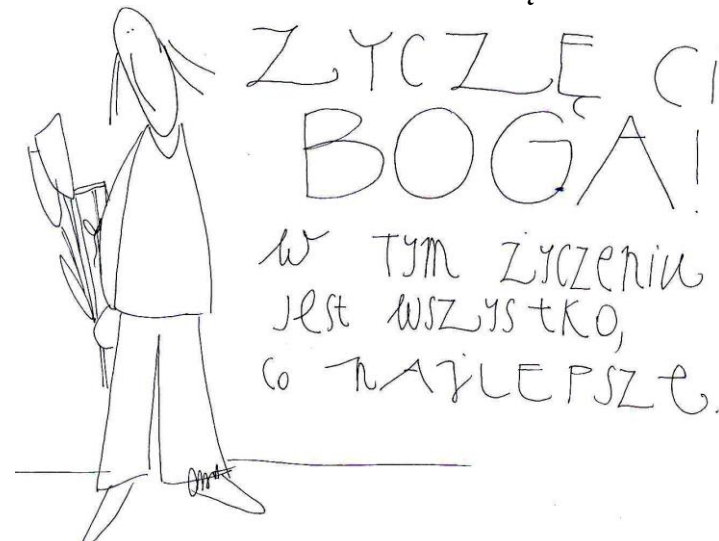 ŻYCZĘ CI
BOGA!
W TYM życzeniu
jest WSZYSTKO,
co NAJLEPSZE.